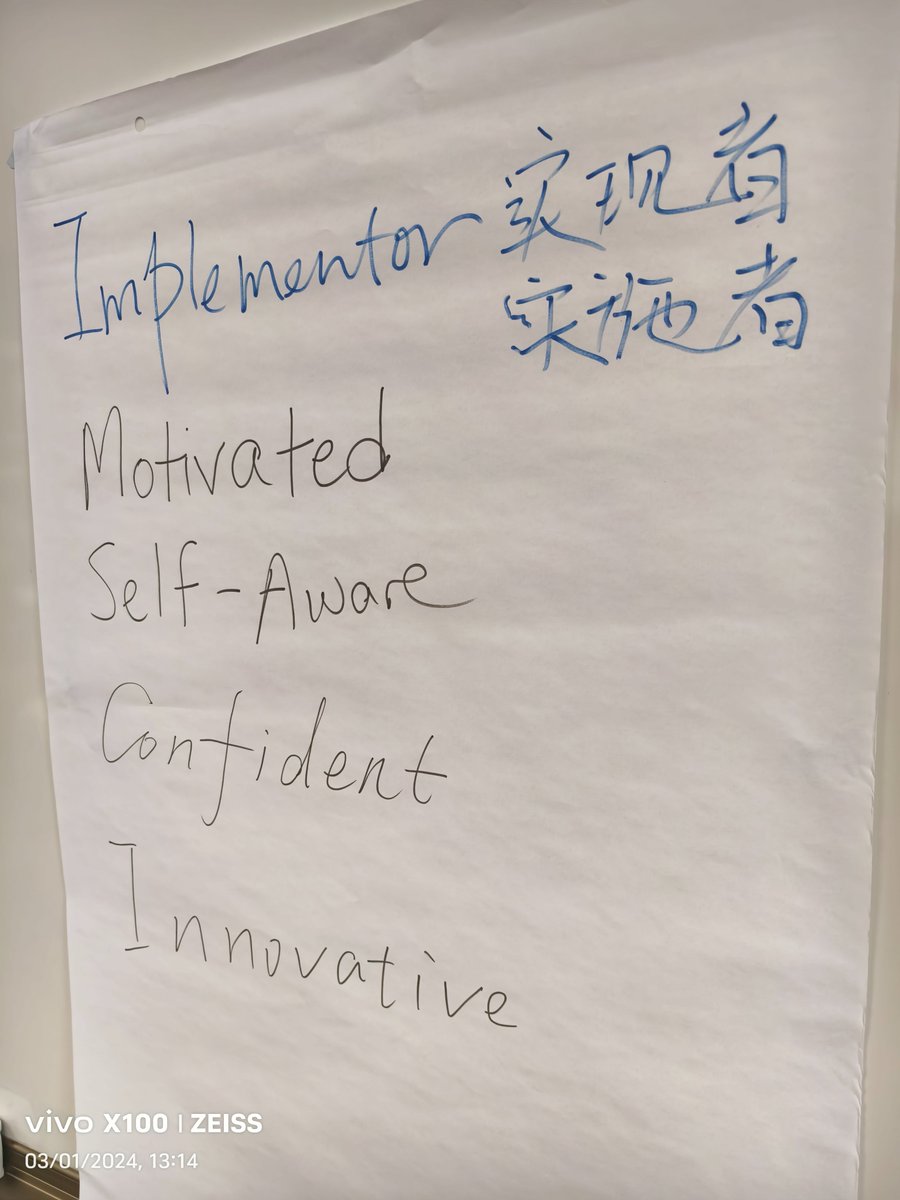 Implementor 实现者
实施者
Motivated
Self-Aware
Confident
Innovative
vivo X100 | ZEISS
03/01/2024, 13:14